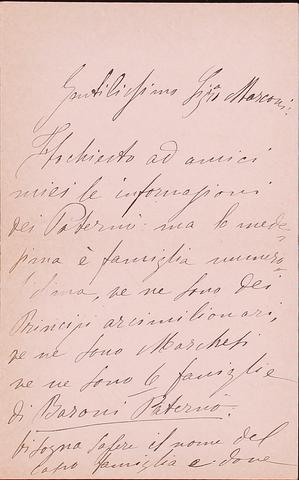 Gentilissimo Sig.ra Marconi:
Ho chiesto ad amici
miei le informazioni
dei Paternò: ma la mede-
sima è famiglia numero-
sissima, ve ne sono dei
Principi arcimilionari,
ve ne sono Marchesi
ve ne sono 6 famiglie
di Baroni Paternò.
Bisogna sapere il nome del
capo famiglia e dove